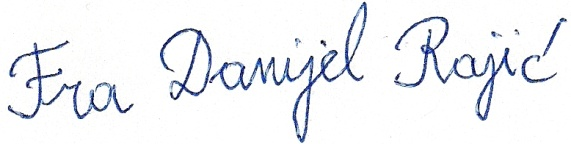 Fra Danijel Rajić